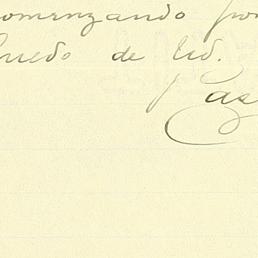 comenzando por
quedo de Ud.
Cas